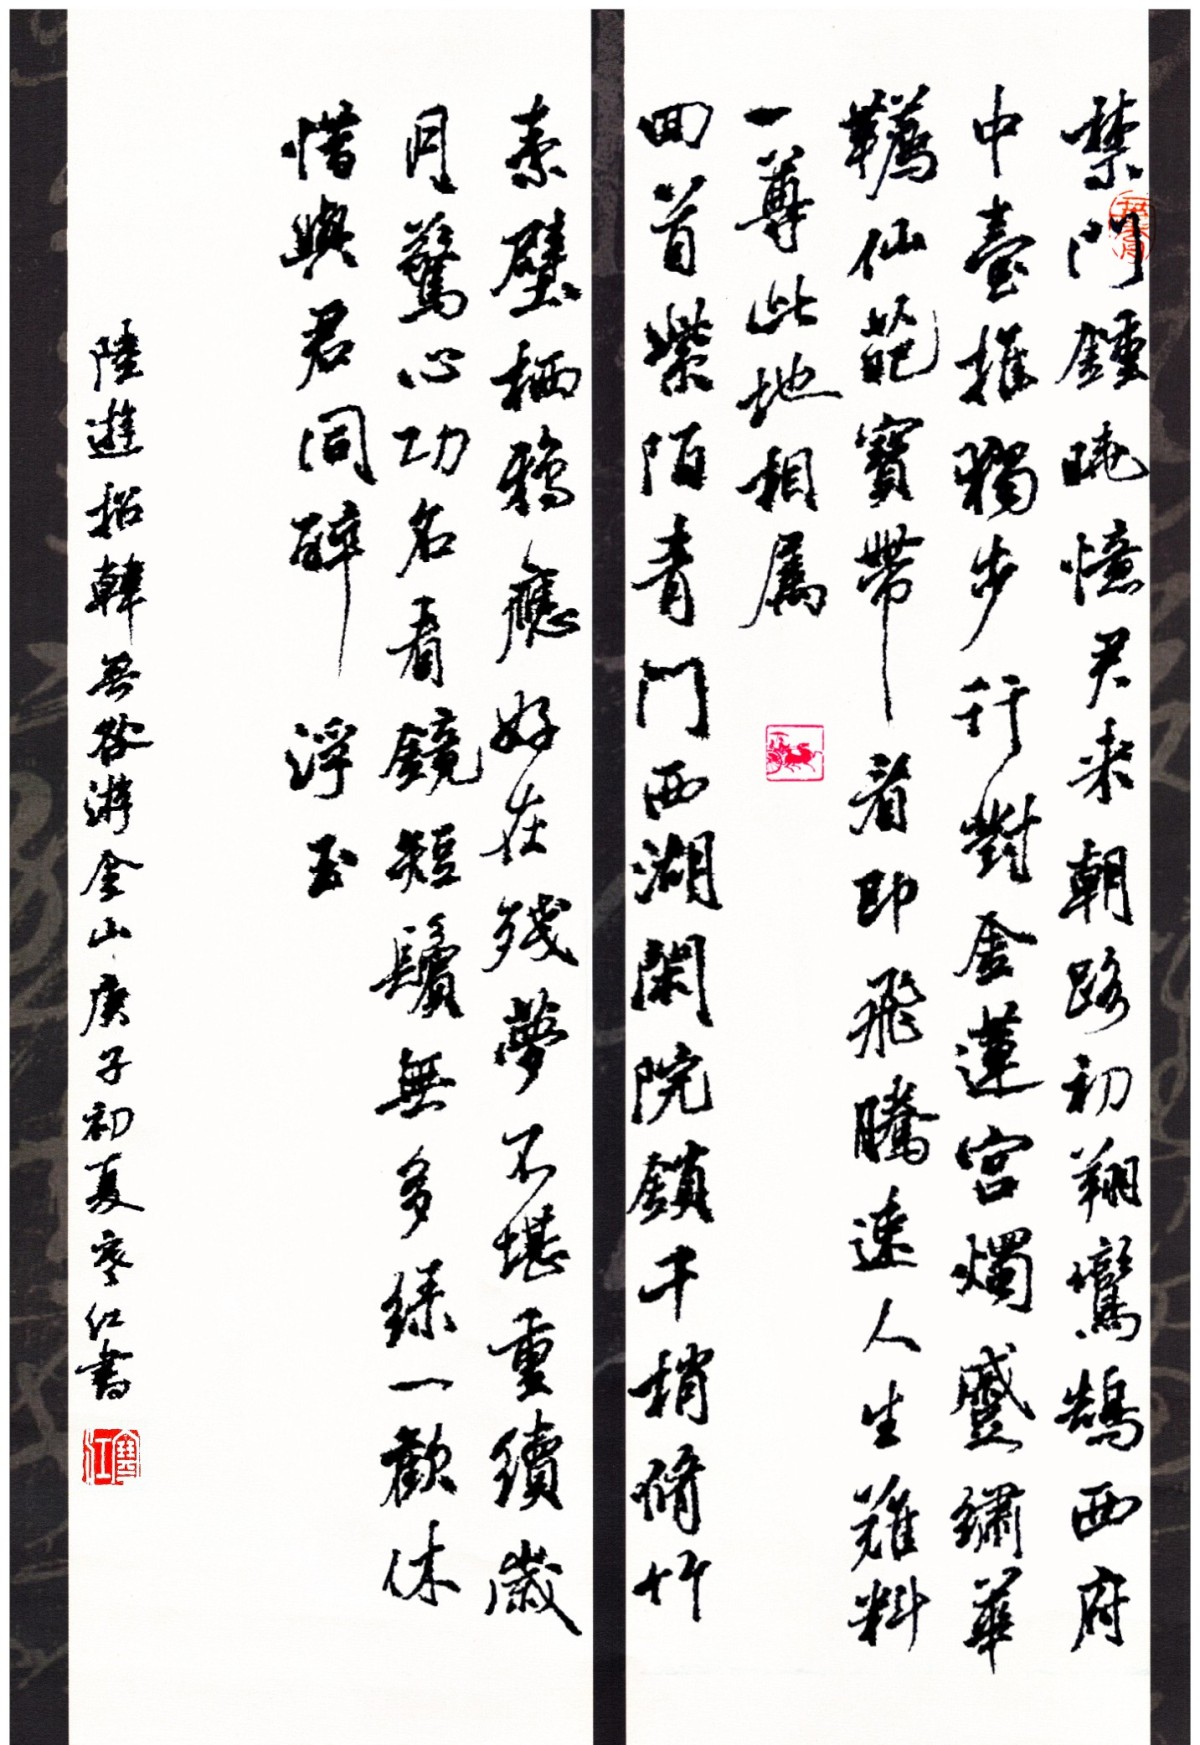 禁門鍾曉憶君来朝路初翔鸞鵠西府
中臺推獨步行對金蓮宮燭蹙繡華
韉仙葩寶帶看即飛騰速人生難料
一尊此地相屬
回首紫陌青門西湖閑院鎖千梢脩竹
素壁栖鴉應好在殘夢不堪重續歲
月驚心功名看鏡短鬢無多綠一歡休
惜與君同醉浮玉
陸遊招韓無咎游金山庚子初夏寒江書
寒江